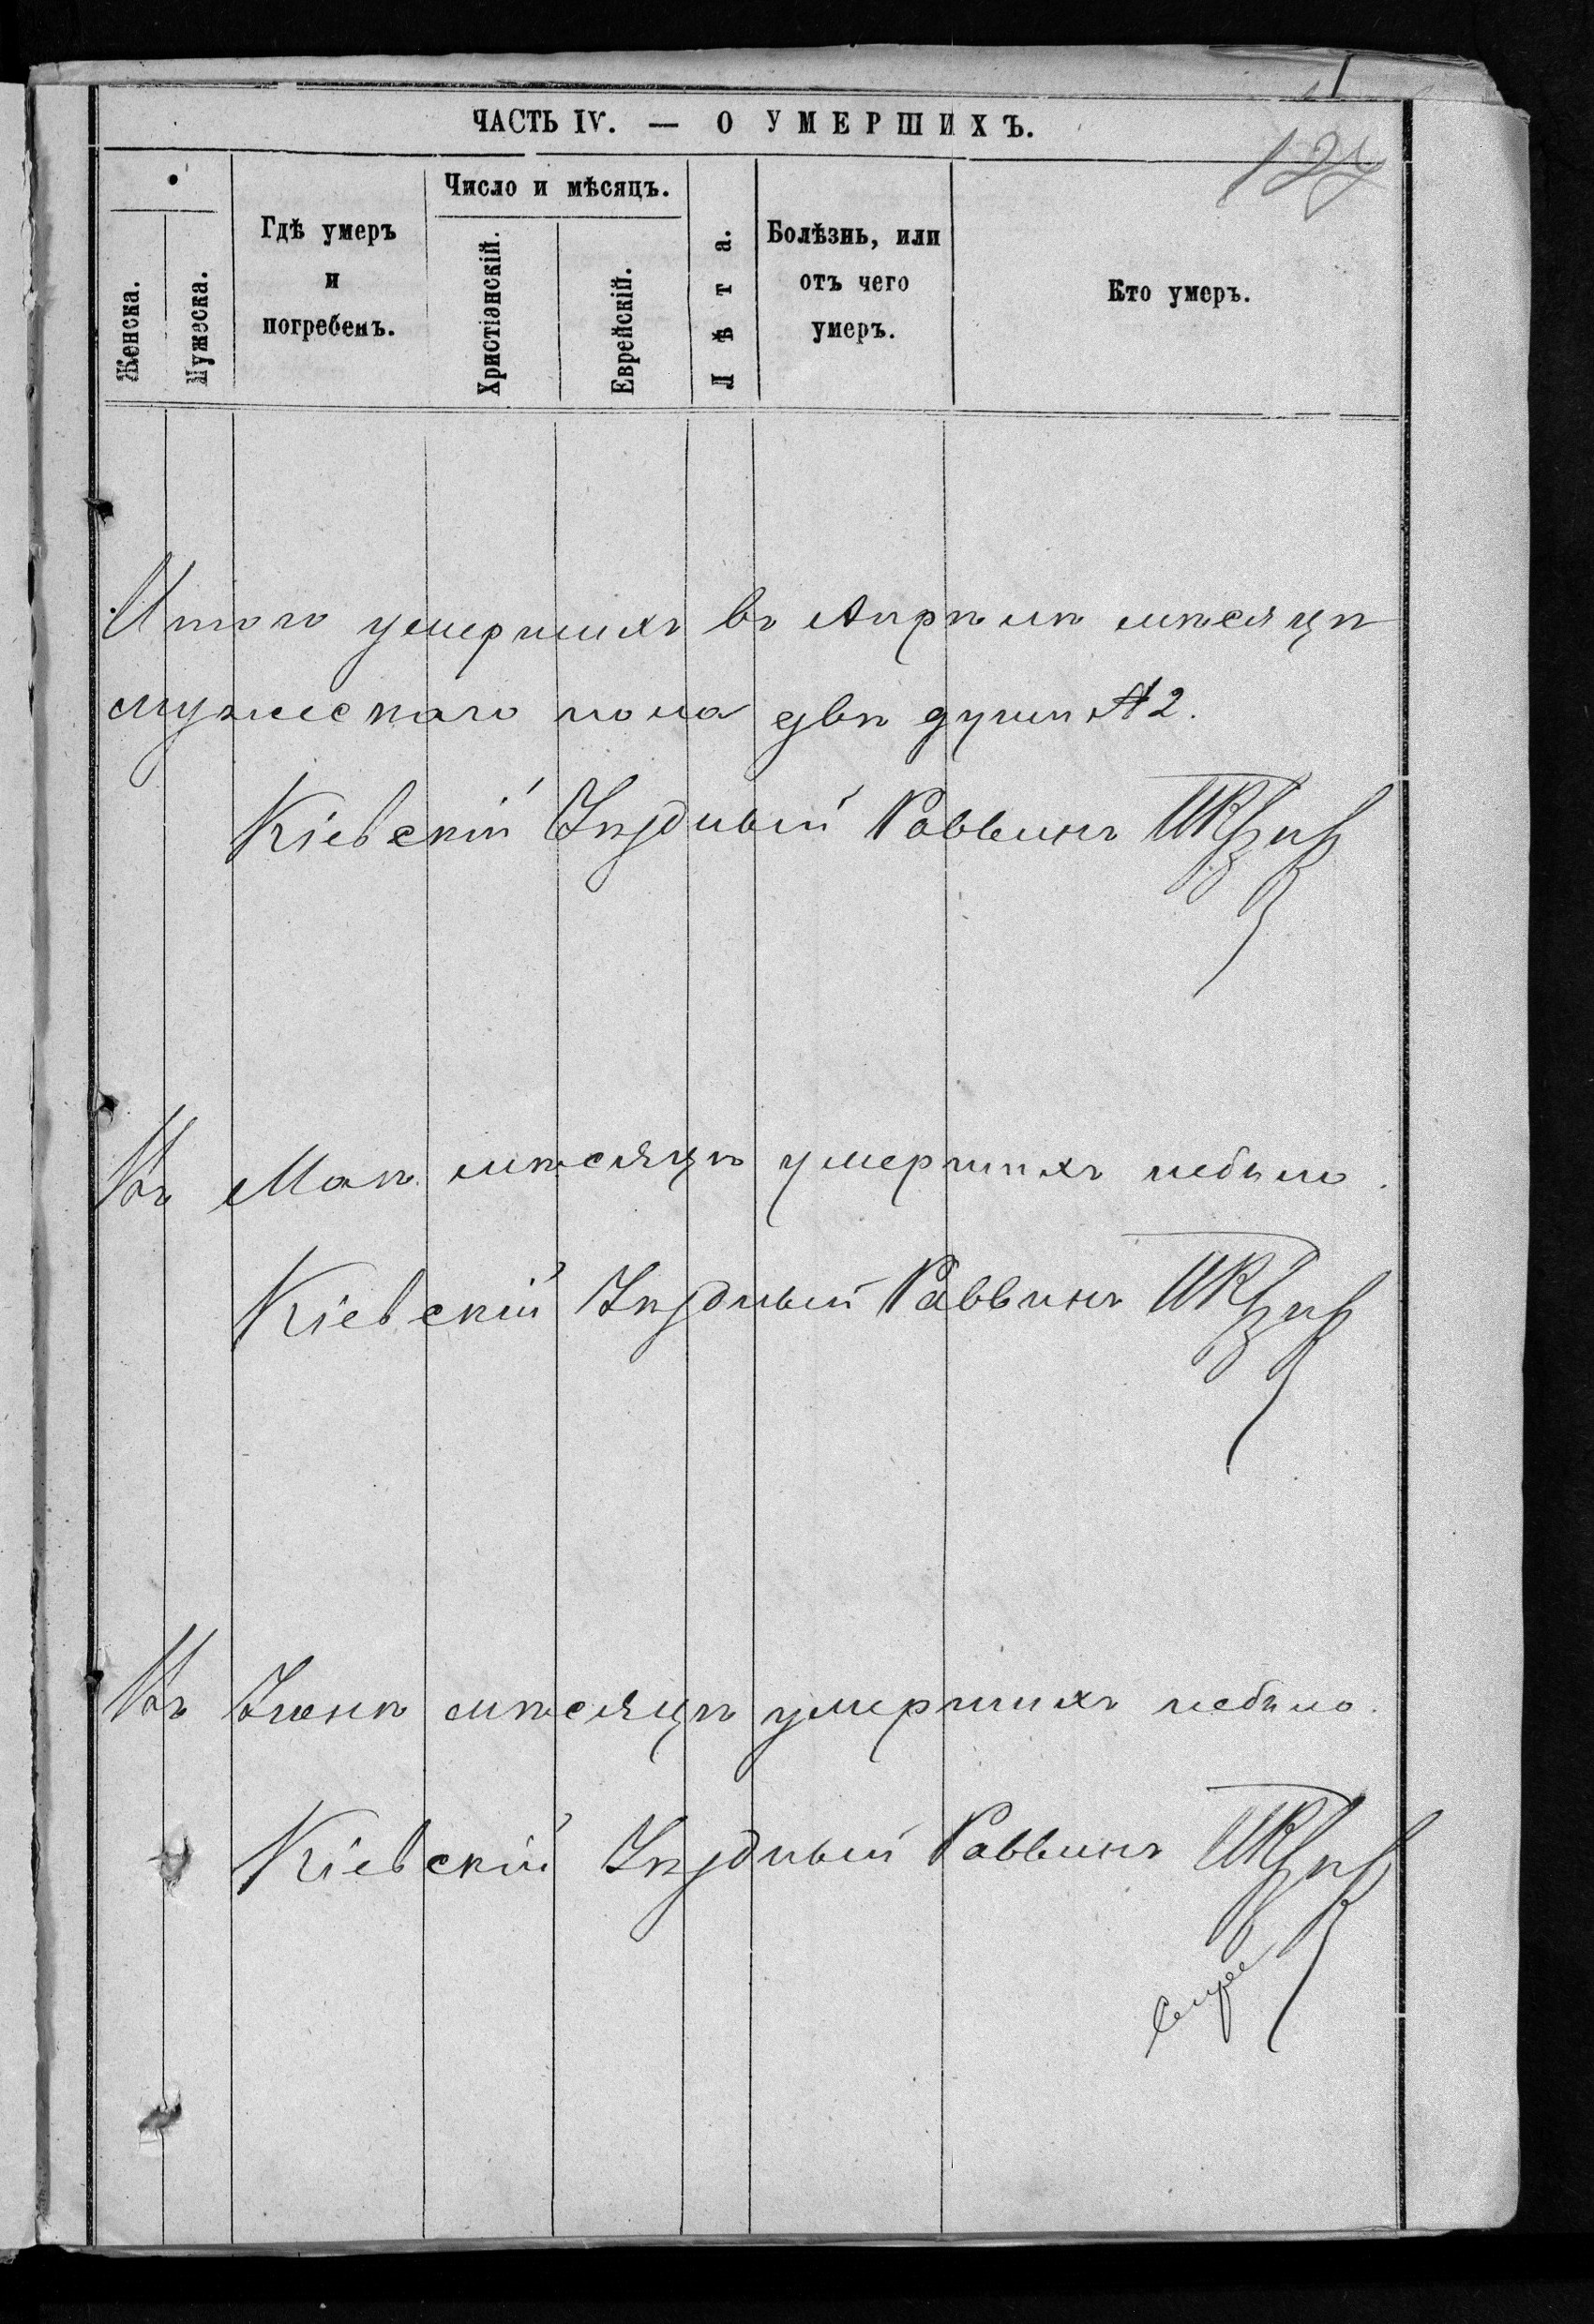 ЧАСТЬ IV. — О УМЕРШИХЪ.
127
Женска.
Мужеска.
Гдѣ умеръ
и
погребенъ.
Число и мѣсяцъ.
Христіанскій.
Еврейскій.
Лѣта.
Болѣзнь, или
отъ чего
умеръ.
Кто умеръ.
Итого умершихъ въ Апрѣлѣ мѣсяцѣ
мужескаго пола двѣ души 2.
Кіевскій Уѣздный Раввинъ
Въ Маѣ мѣсяцѣ умершихъ небыло.
Кіевскій Уѣздный Раввинъ
Въ Іюнѣ мѣсяцѣ умершихъ небыло.
Кіевскій Уѣздный Раввинъ